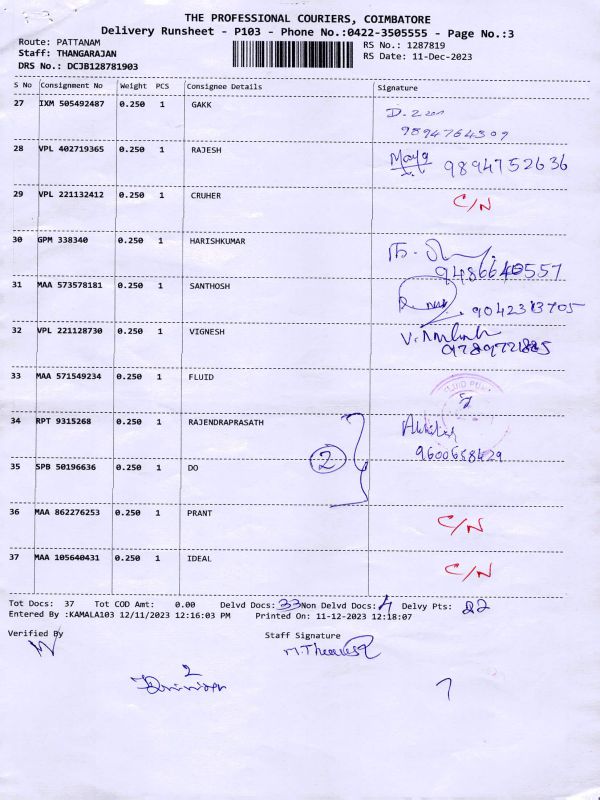 THE PROFESSIONAL COURIERS, COIMBATORE
Delivery Runsheet - P103 - Phone No.:0422-3505555 - Page No.:3
Route: PATTANAM
Staff: THANGARAJAN
DRS No.: DCJB128781903
RS No.: 1287819
RS Date: 11-Dec-2023
S No Consignment No Weight PCS Consignee Details Signature
27 IXM 505492487 0.250 1 GAKK
9894764309
28 VPL 402719365 0.250 1 RAJESH
9894752636
29 VPL 221132412 0.250 1 CRUHER C/N
30 GPM 338340 0.250 1 HARISHKUMAR
9486640557
31 MAA 573578181 0.250 1 SANTHOSH
32 VPL 221128730 0.250 1 VIGNESH
33 MAA 571549234 0.250 1 FLUID
34 RPT 9315268 0.250 1 RAJENDRAPRASATH
2
9600658429
35 SPB 50196636 0.250 1 DO
36 MAA 862276253 0.250 1 PRANT C/N
37 MAA 105640431 0.250 1 IDEAL C/N
Tot Docs: 37 Tot COD Amt: 0.00 Delvd Docs: 33 Non Delvd Docs: 4 Delvy Pts: 22
Entered By :KAMALA103 12/11/2023 12:16:03 PM Printed On: 11-12-2023 12:18:07
Verified By Staff Signature
2